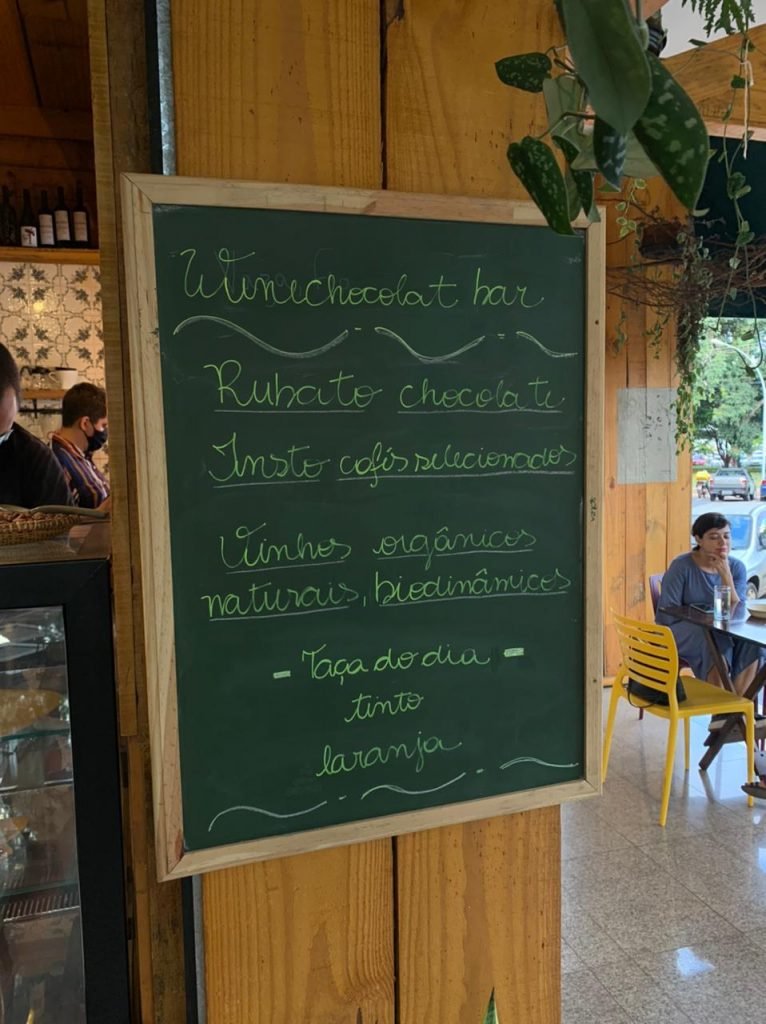 Winechocolat bar
Rubato chocolate
Insto cafés selecionados
Vinhos orgânicos
naturais, biodinâmicos
- Taça do dia -
tinto
laranja